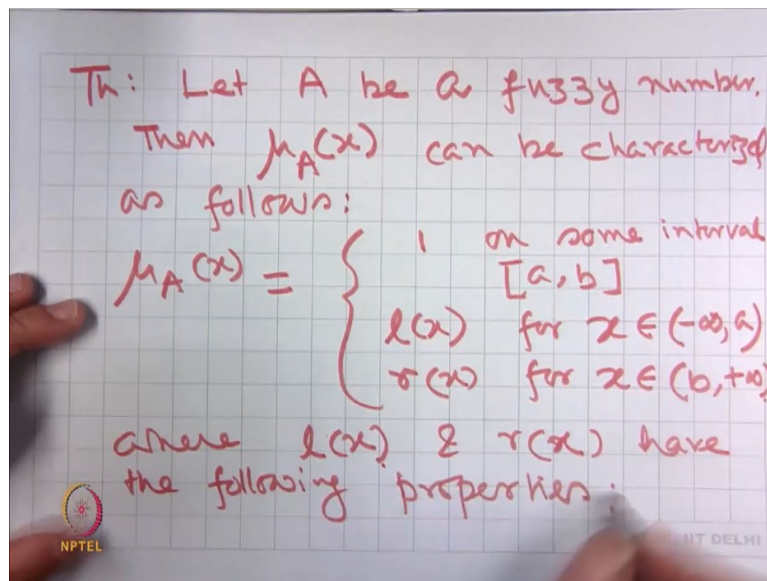 Th: Let A be a fuzzy number.
Then μ_A(x) can be characterized
as follows:
μ_A(x) = { 1 on some interval
[a, b]
l(x) for x ∈ (-∞, a)
r(x) for x ∈ (b, +∞)
where l(x) & r(x) have
the following properties:
NPTEL
IIT DELHI